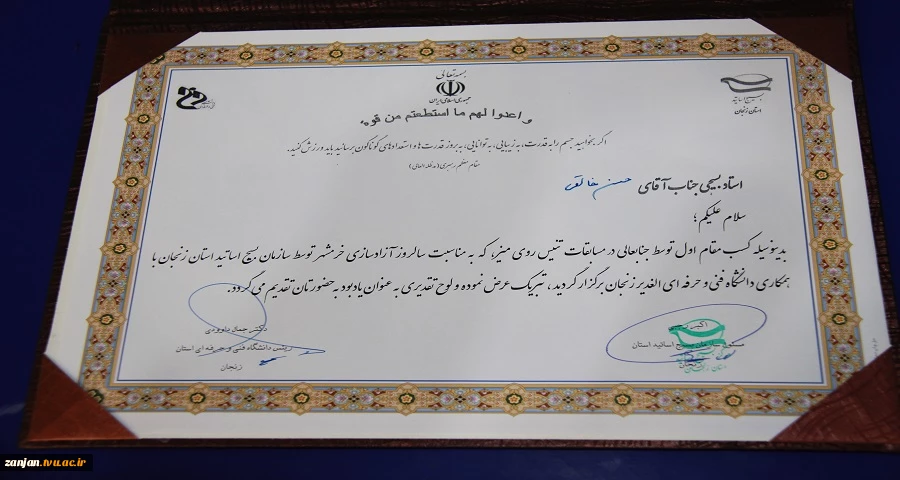 بسمه تعالی
جمهوری اسلامی ایران
بسیج اساتید
استان زنجان
و اعدوا لهم ما استطعتم من قوه
اگر بخواهید جسم را به قدرت، به زیبایی، به توانایی، به بروز قدرت ها و استعدادهای گوناگون برسانید باید ورزش کنید.
مقام معظم رهبری (مدظله العالی)
استاد بسیجی جناب آقای حسن خالقی
سلام علیکم؛
بدینوسیله کسب مقام اول توسط جنابعالی در مسابقات تنیس روی میز، که به مناسبت سالروز آزادسازی خرمشهر توسط سازمان بسیج اساتید استان زنجان با
همکاری دانشگاه فنی و حرفه ای الغدیر زنجان برگزار گردید، تبریک عرض نموده و لوح تقدیری به عنوان یادبود به حضورتان تقدیم می گردد.
اکبر
مسئول سازمان بسیج اساتید استان
زنجان
دکتر جمال داوودی
رییس دانشگاه فنی و حرفه ای استان
زنجان
zanjan.tvu.ac.ir